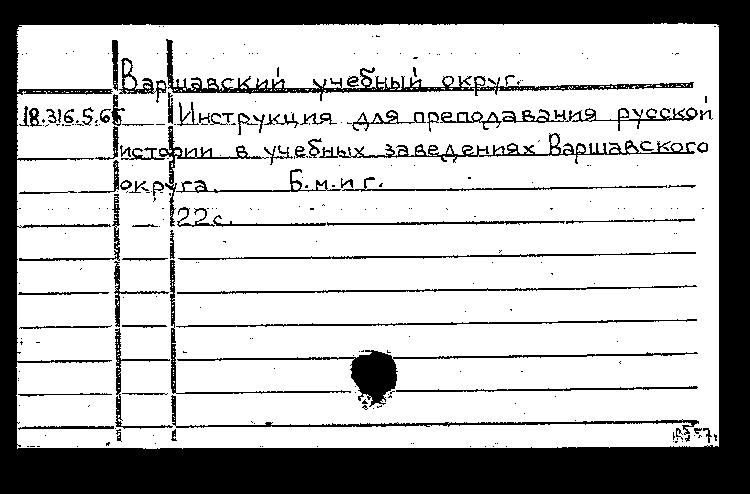 Варшавский учебный округ.
18.316.5.65 Инструкция для преподавания русской
истории в учебных заведениях Варшавского
округа. Б.м.и г.
22с.